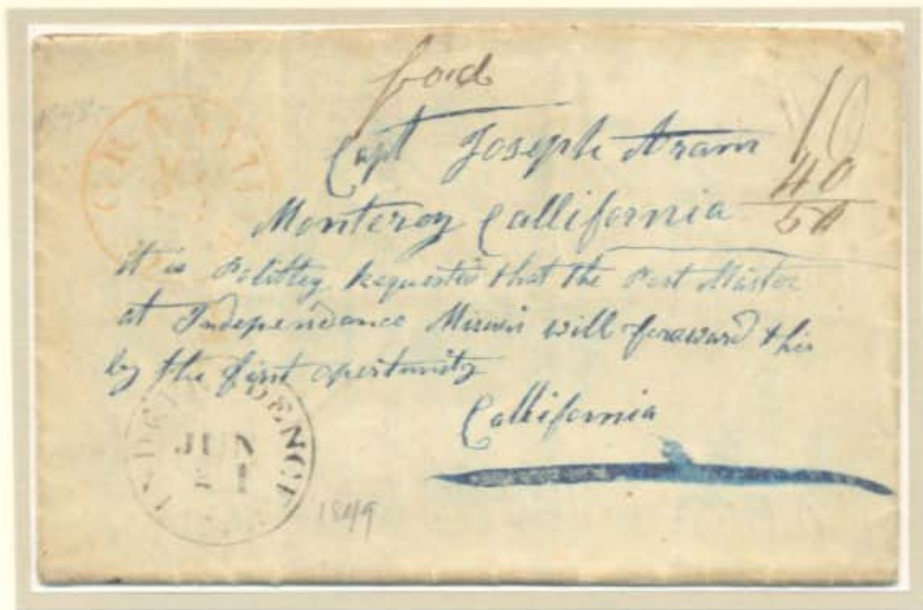 paid
Capt Joseph Aram
10
Monterey Callifornia
40
50
it is Polittey Requested that the Post Master
at Independance Missuri will foraward this
by the first opertunity
Callifornia
INDEPENDENCE
JUN
1849